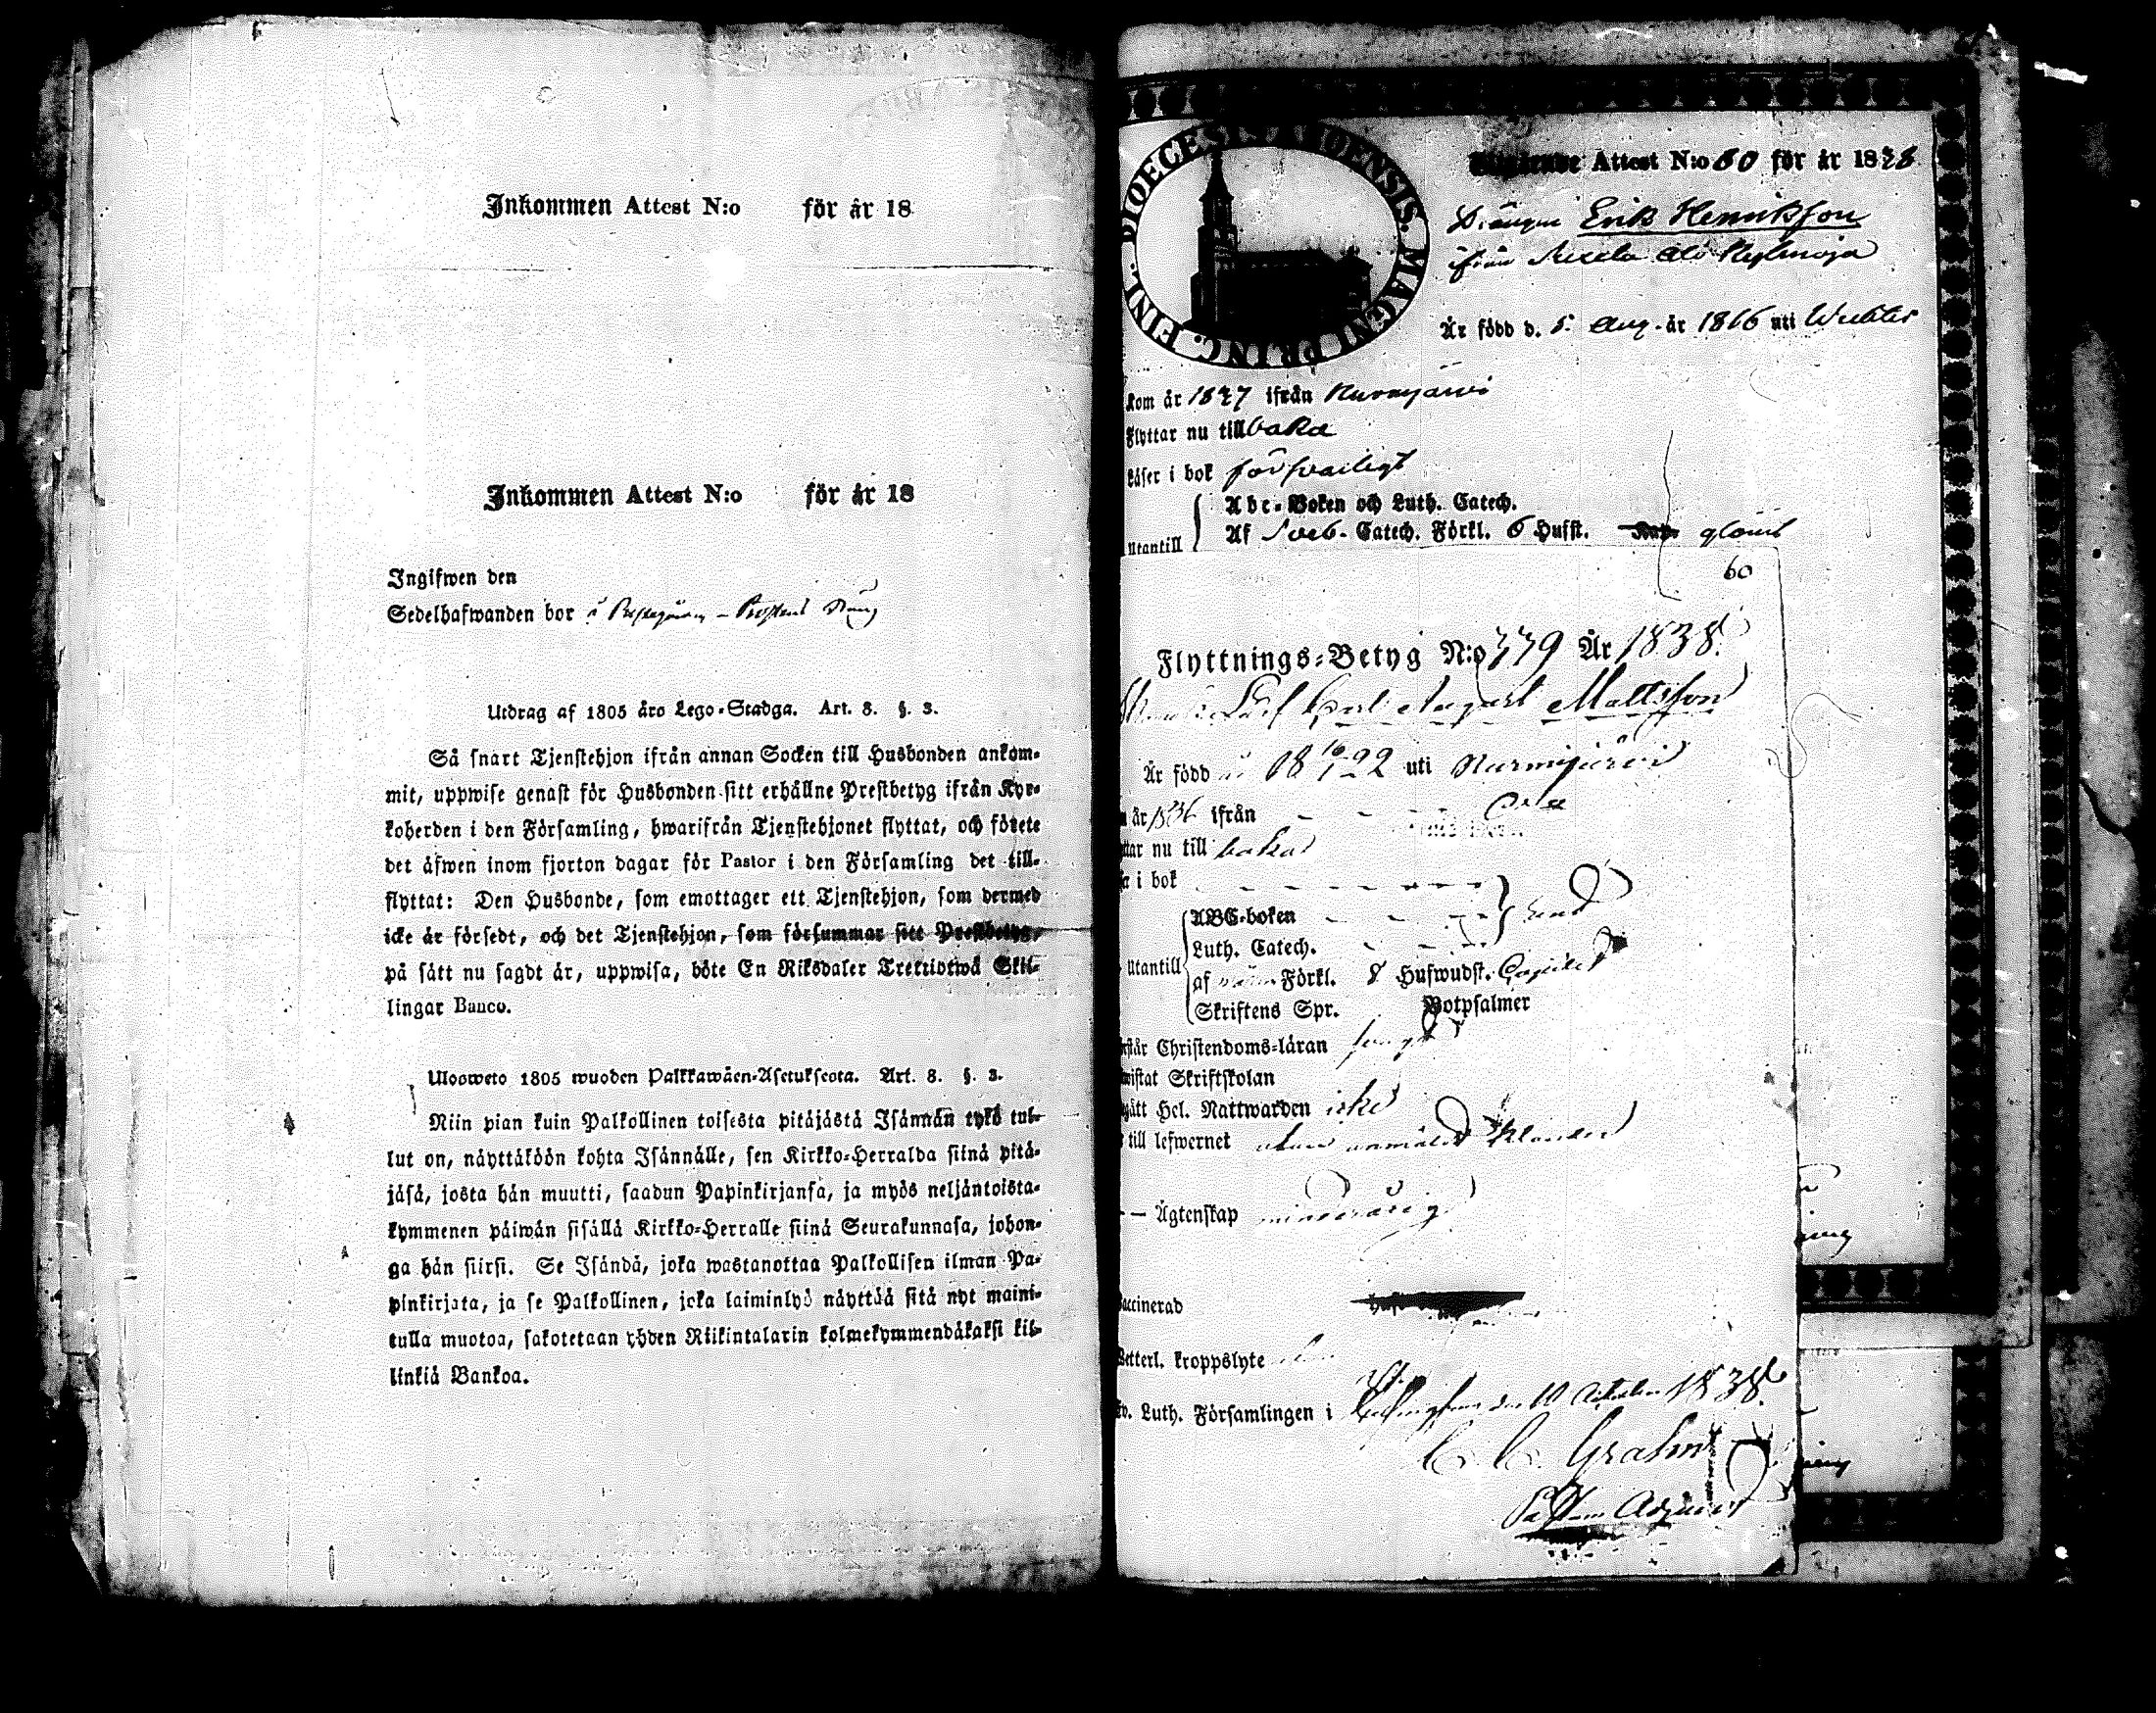 Inkommen Attest N:o för år 18
Inkommen Attest N:o för år 18
Ingifwen den
Sedelhafwanden bor å
Utdrag af 1805 års Lego-Stadga. Art. 8. §. 3.
Så snart Tjenstehjon ifrån annan Socken till Husbonden ankom-
mit, uppwise genast för Husbonden sitt erhållne Prestbetyg ifrån Kyr-
koherden i den Församling, hwarifrån Tjenstehjonet flyttat, och förete
det äfwen inom fjorton dagar för Pastor i den Församling det till-
flyttat: Den Husbonde, som emottager ett Tjenstehjon, som dermed
icke är försedt, och det Tjenstehjon, som försummar sitt Prestbetyg,
på sätt nu sagdt är, uppwisa, böte En Riksdaler Trettiotwå Skil-
lingar Banco.
Ulosweto 1805 wuoden Palkkawäen-Asetuksesta. Art. 8. §. 3.
Niin pian kuin Palkollinen toisesta pitäjästä Isännän tykö tul-
lut on, näyttäköön kohta Isännälle, sen Kirkko-Herralda siinä pitä-
jäsä, josta hän muutti, saadun Papinkirjansa, ja myös neljäntoista-
kymmenen päiwän sisällä Kirkko-Herralle siinä Seurakunnasa, johon-
ga hän siirsi. Se Isändä, joka wastanottaa Palkollisen ilman Pa-
pinkirjata, ja se Palkollinen, joka laiminlyö näyttää sitä nyt maini-
tulla muotoa, sakotetaan yhden Riikintalarin kolmekymmendäkaksi kil-
linkiä Bankoa.
FINL. DIOECESIS ABOENSIS. MAGNI PRINC.
Attest N:o 60 för år 1838
Drängen Erik Henriksson
ifrån
Är född d. 5 Aug. år 1816 uti
kom år 1837 ifrån Nurmijärvi
Flyttar nu tillbaka
Läser i bok förswarligt
Abc-Boken och Luth. Catech.
Utantill Af Sveb. Catech. Förkl. 6 Hufst. glömt
60
Flyttnings-Betyg N:o 779 År 1838.
Carl August Mattsson
Är född 18 22 uti Nurmijärvi
år 1836 ifrån
ttar nu till baka
a i bok
ABC-boken
Luth. Catech.
Utantill af Förkl. 8 Hufwudst.
Skriftens Spr. Botpsalmer
rstår Christendoms-läran
wistat Skriftskolan
gått Hel. Nattwarden icke
till lefwernet utan anmäldt klander
Ägtenskap minderårig
accinerad
etterl. kroppslyte utan
v. Luth. Församlingen i Helsingfors den 10 October 1838.
Grahn
Pastors Adjunct